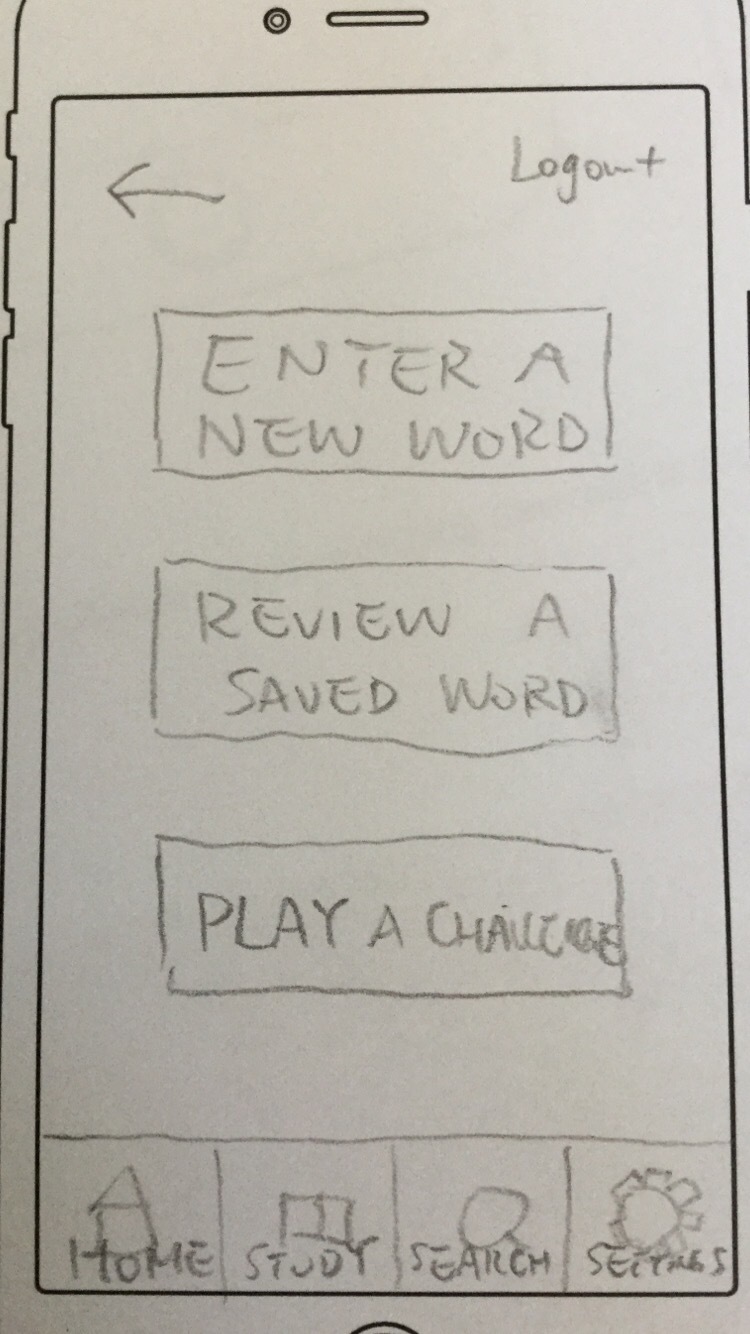 Logout
ENTER A
NEW WORD
REVIEW A
SAVED WORD
PLAY A CHALLENGE
HOME
STUDY
SEARCH
SETTINGS